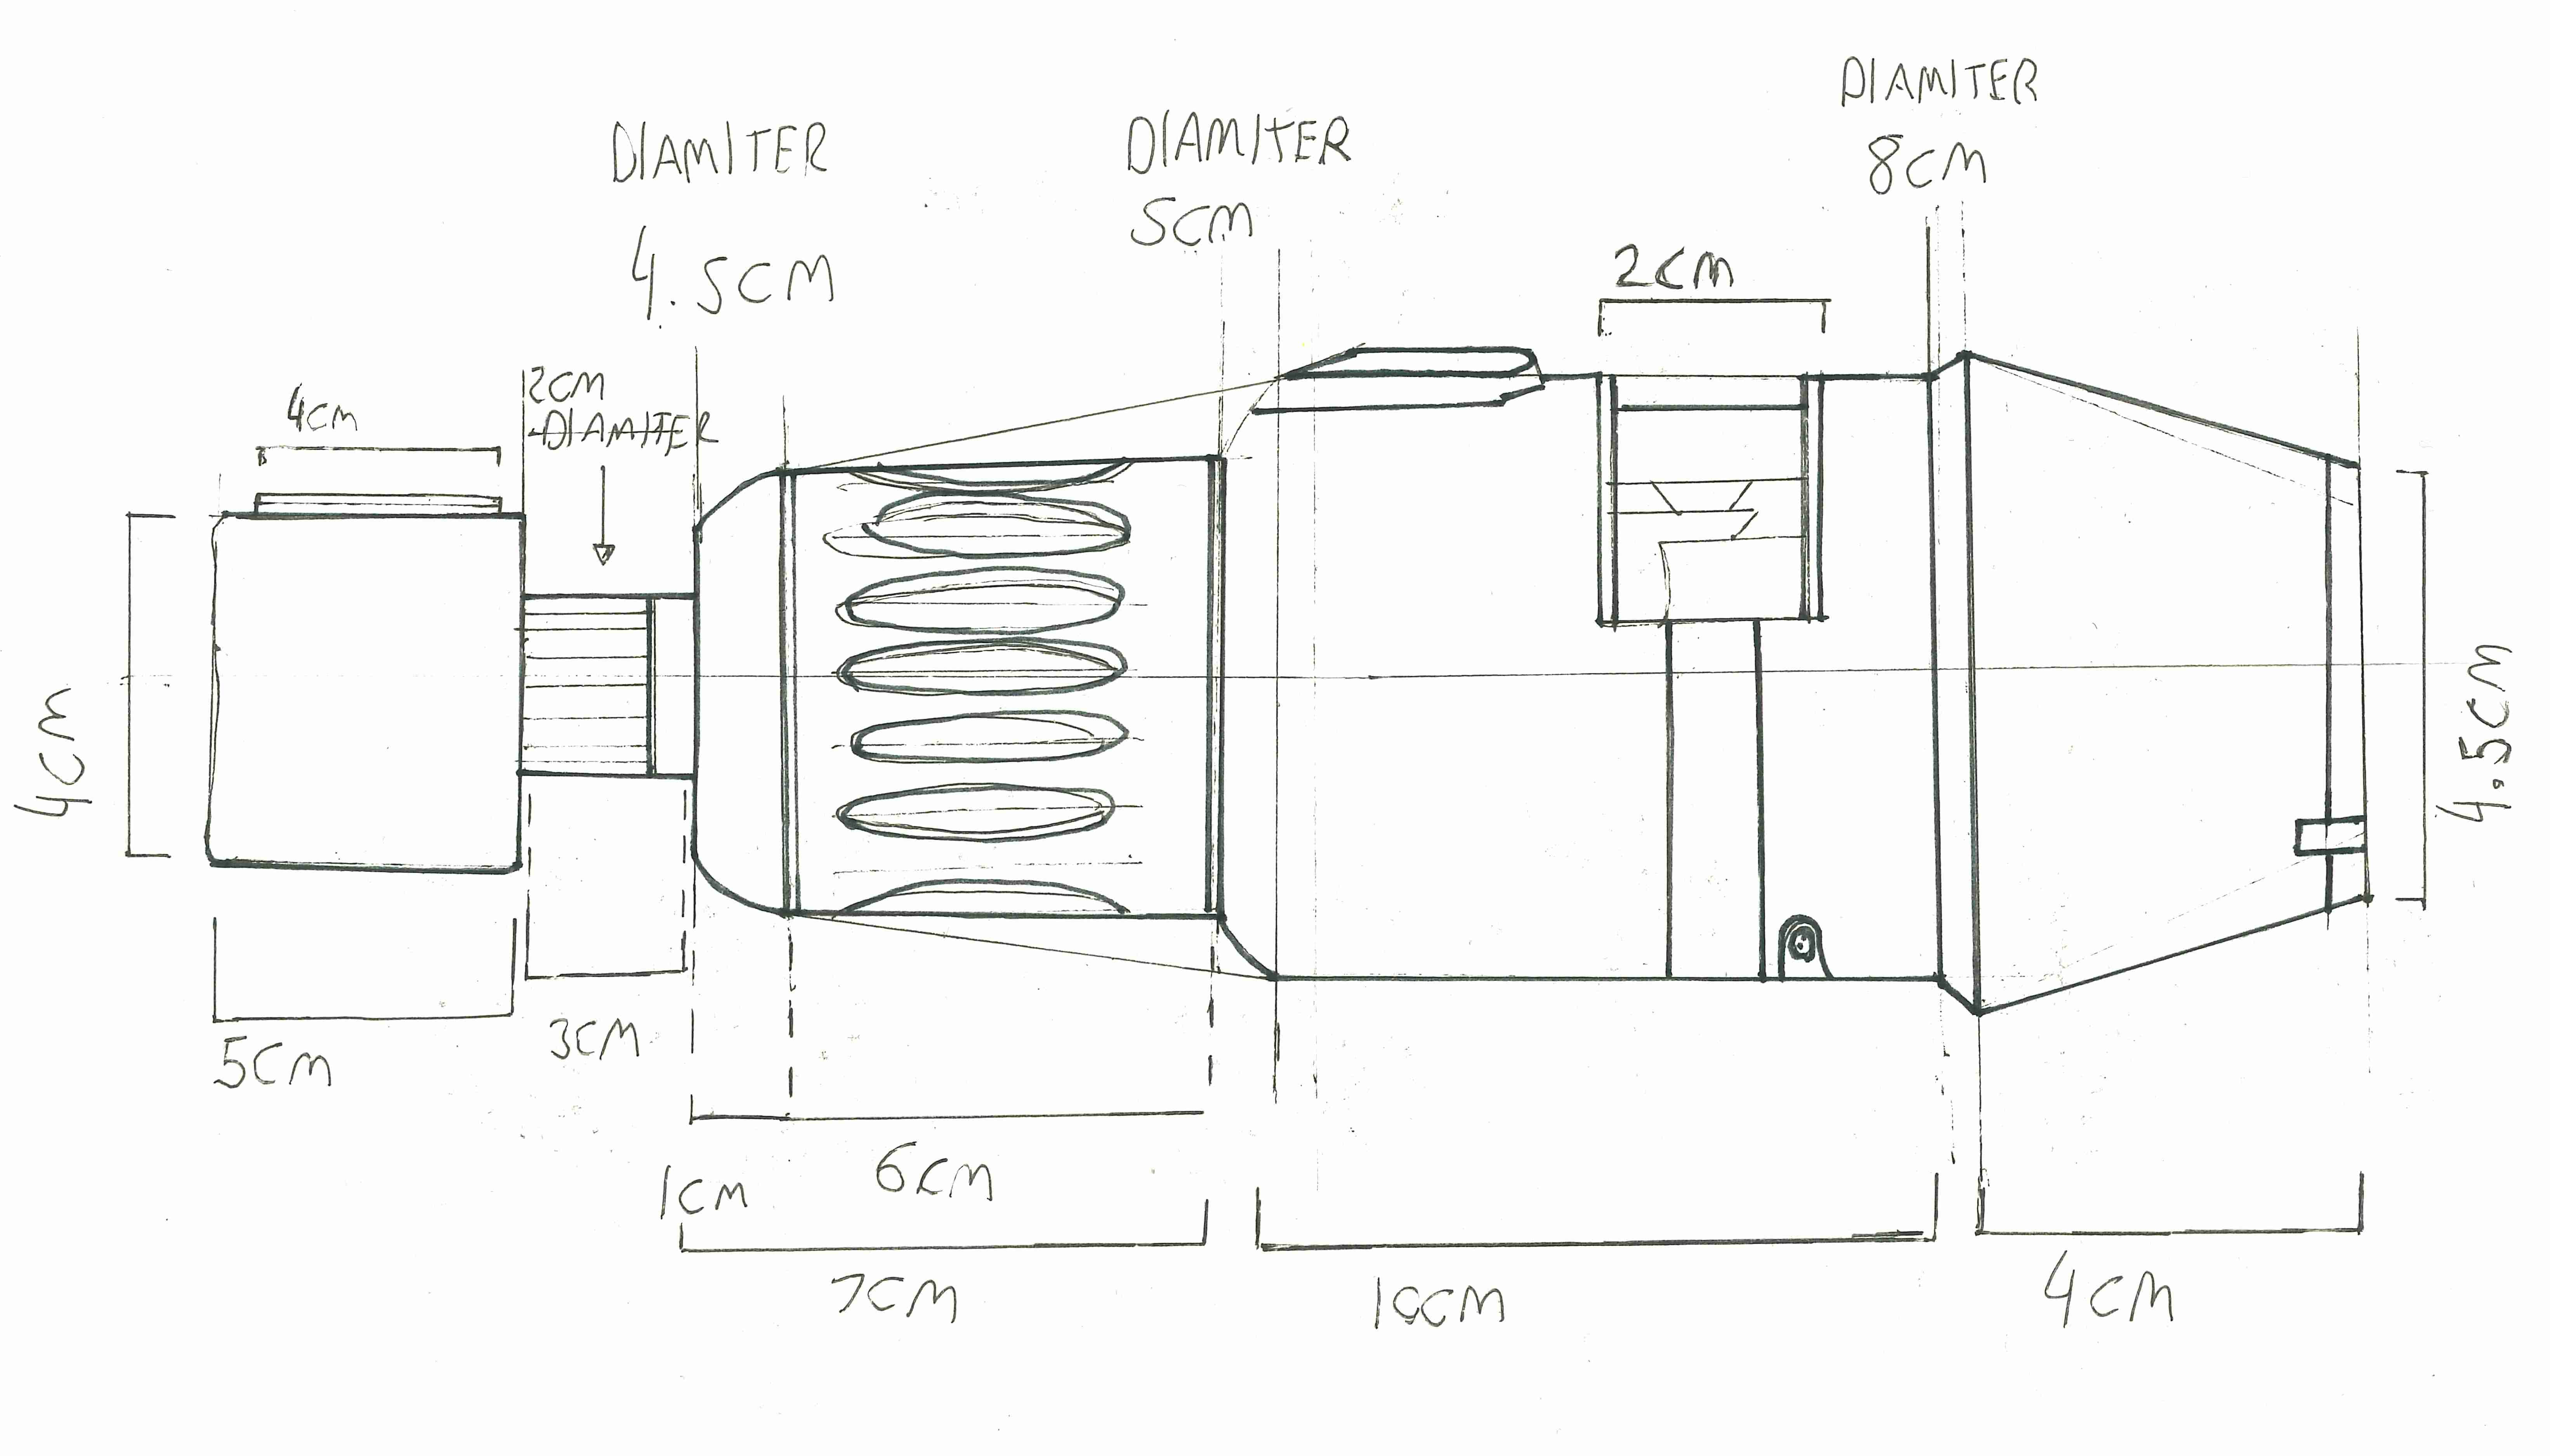 DIAMITER
8CM
DIAMITER
5CM
DIAMITER
4.5CM
2CM
2CM
DIAMITER
4CM
4CM
4.5CM
5CM
3CM
1CM
6CM
7CM
10CM
4CM